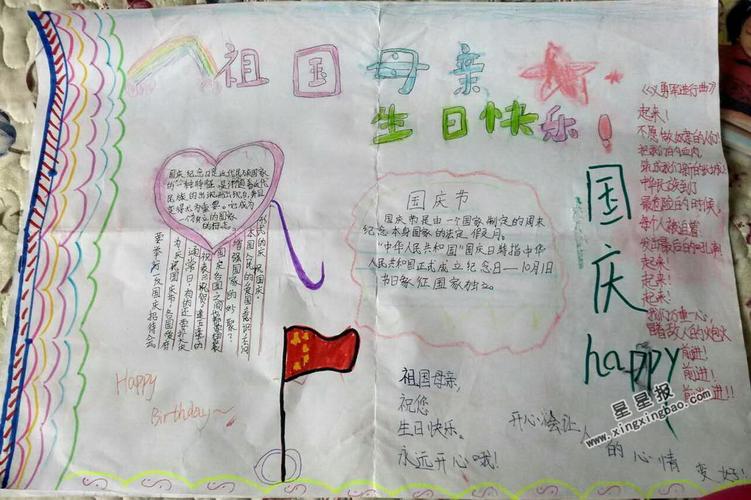 祖国母亲
生日快乐！
国庆纪念日是近代民族国家
的一种特征，是伴随着近代
民族国家的出现而出现的，并且
变得尤为重要。它成为
一个独立的国家
的标志
国庆节
国庆节是由一个国家制定的用来
纪念本身国家的法定假日。
“中华人民共和国”国庆日特指中华
人民共和国正式成立纪念日——10月1日
为日象征国家独立。
《义勇军进行曲》
起来！
不愿做奴隶的人们
把我们的血肉
筑成我们新的长城！
中华民族到了
最危险的时候，
每个人被迫着
发出最后的吼声
起来！
起来！
起来！
我们万众一心，
冒着敌人的炮火
前进！
前进！
前进！进！！
国庆
happy
Happy
Birthday~
祖国母亲，
祝您
生日快乐。
永远开心哦！
开心会让人
的心情
变好！
星星报
www.xingxingbao.com